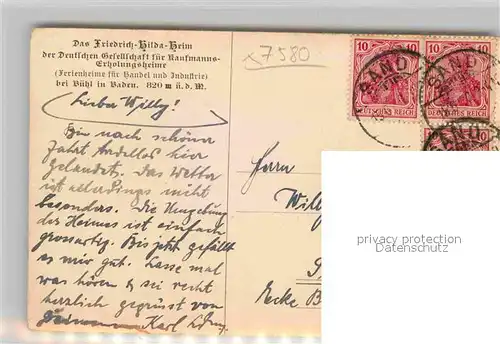 Das Friedrich-Hilda-Heim
der Deutschen Gesellschaft für Kaufmanns-
Erholungsheime
(Ferienheime für Handel und Industrie)
bei Bühl in Baden. 820 m ü. d. M.
7580
Lieber Willy!
Bin nach schöner
Fahrt hier
gelandet. Das Wetter
ist allerdings nicht
besonders. Die Umgebung
des Heimes ist einfach
grossartig. Bis jetzt gefällt
es mir gut. Lasse mal
was hören & sei recht
herzlich gegrüsst von
Karl
10 10 10 10
DEUTSCHES REICH
DEUTSCHES REICH
SAND
SAND
SAND
10
Herrn
Will
Ecke B
privacy protection
www.oldthing.com